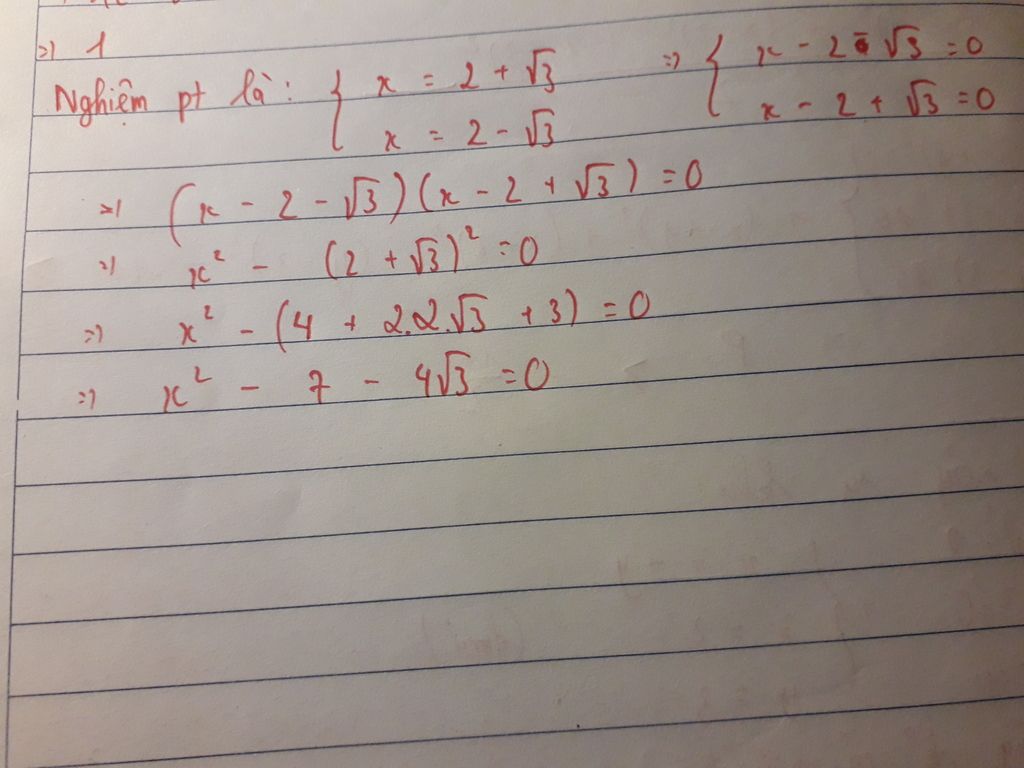 =) 1
Nghiệm pt là: { x = 2 + √3 =) { x - 2 - √3 = 0
x = 2 - √3 x - 2 + √3 = 0
=) (x - 2 - √3)(x - 2 + √3) = 0
=) x² - (2 + √3)² = 0
=) x² - (4 + 2.2.√3 + 3) = 0
=) x² - 7 - 4√3 = 0